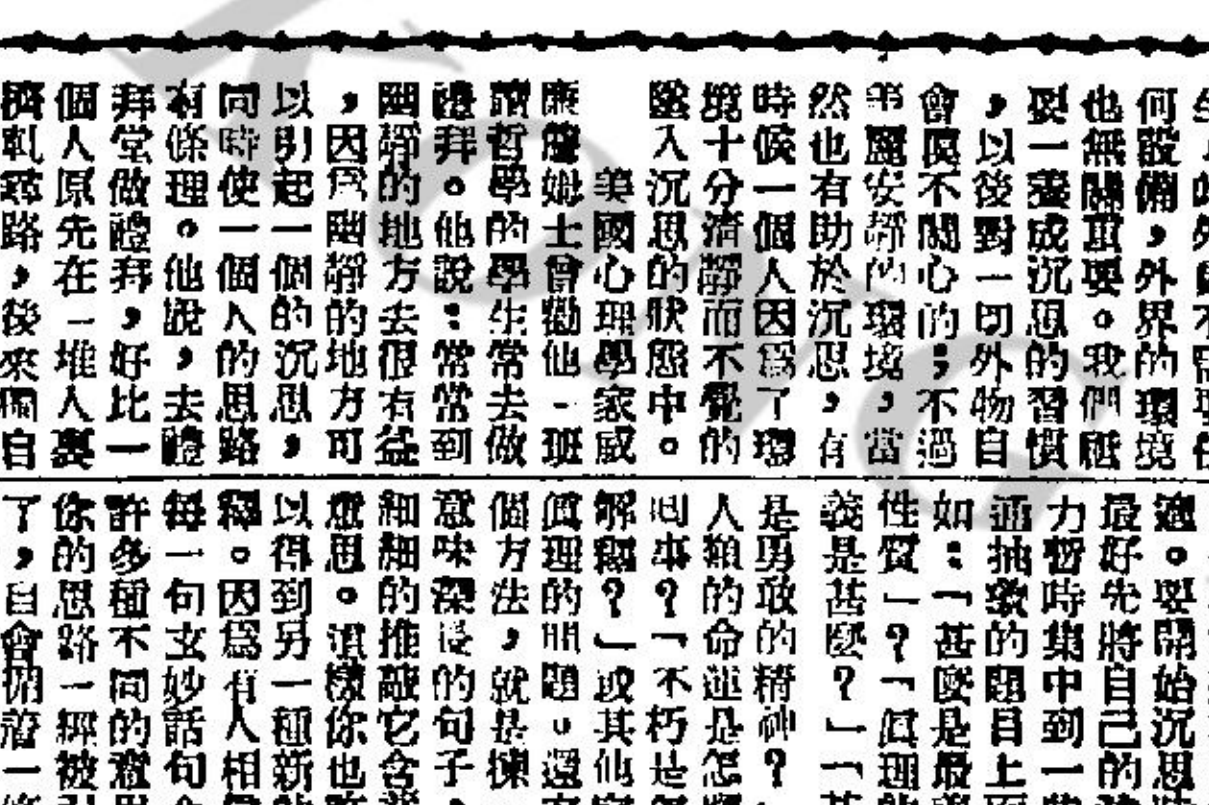 何設備，外界的環境
也無關重要。我們祇
要一養成沉思的習慣
，以後對一切外物自
會漠不關心的；不過
麗安靜的環境，當
然也有助於沉思，有
時候一個人因爲了環
境十分清靜而不覺的
墜入沉思的狀態中。
美國心理學家威
廉詹姆士曾勸他一班
讀哲學的學生常去做
禮拜。他說：常常到
幽靜的地方去很有益
，因爲幽靜的地方可
以引起一個的沉思，
同時使一個人的思路
有條理。他說，去禮
拜堂做禮拜，好比一
個人原先在一堆人裏
擠軋尋路，後來獨自
。要開始沉思
最好先將自己的
力暫時集中到一
通抽象的題目上
如：「甚麼是最
性質」？「眞理
義是甚麼？」「
是勇敢的精神？
人類的命運是怎
回事？「不朽是
解釋？」或其他
眞理的問題。還
個方法，就是揀
意味深長的句子
細細的推敲它含
意思。這樣你也
以得到另一種新
釋。因爲有人相
每一句玄妙話句
許多種不同的意
你的思路一經被
了，自會着一